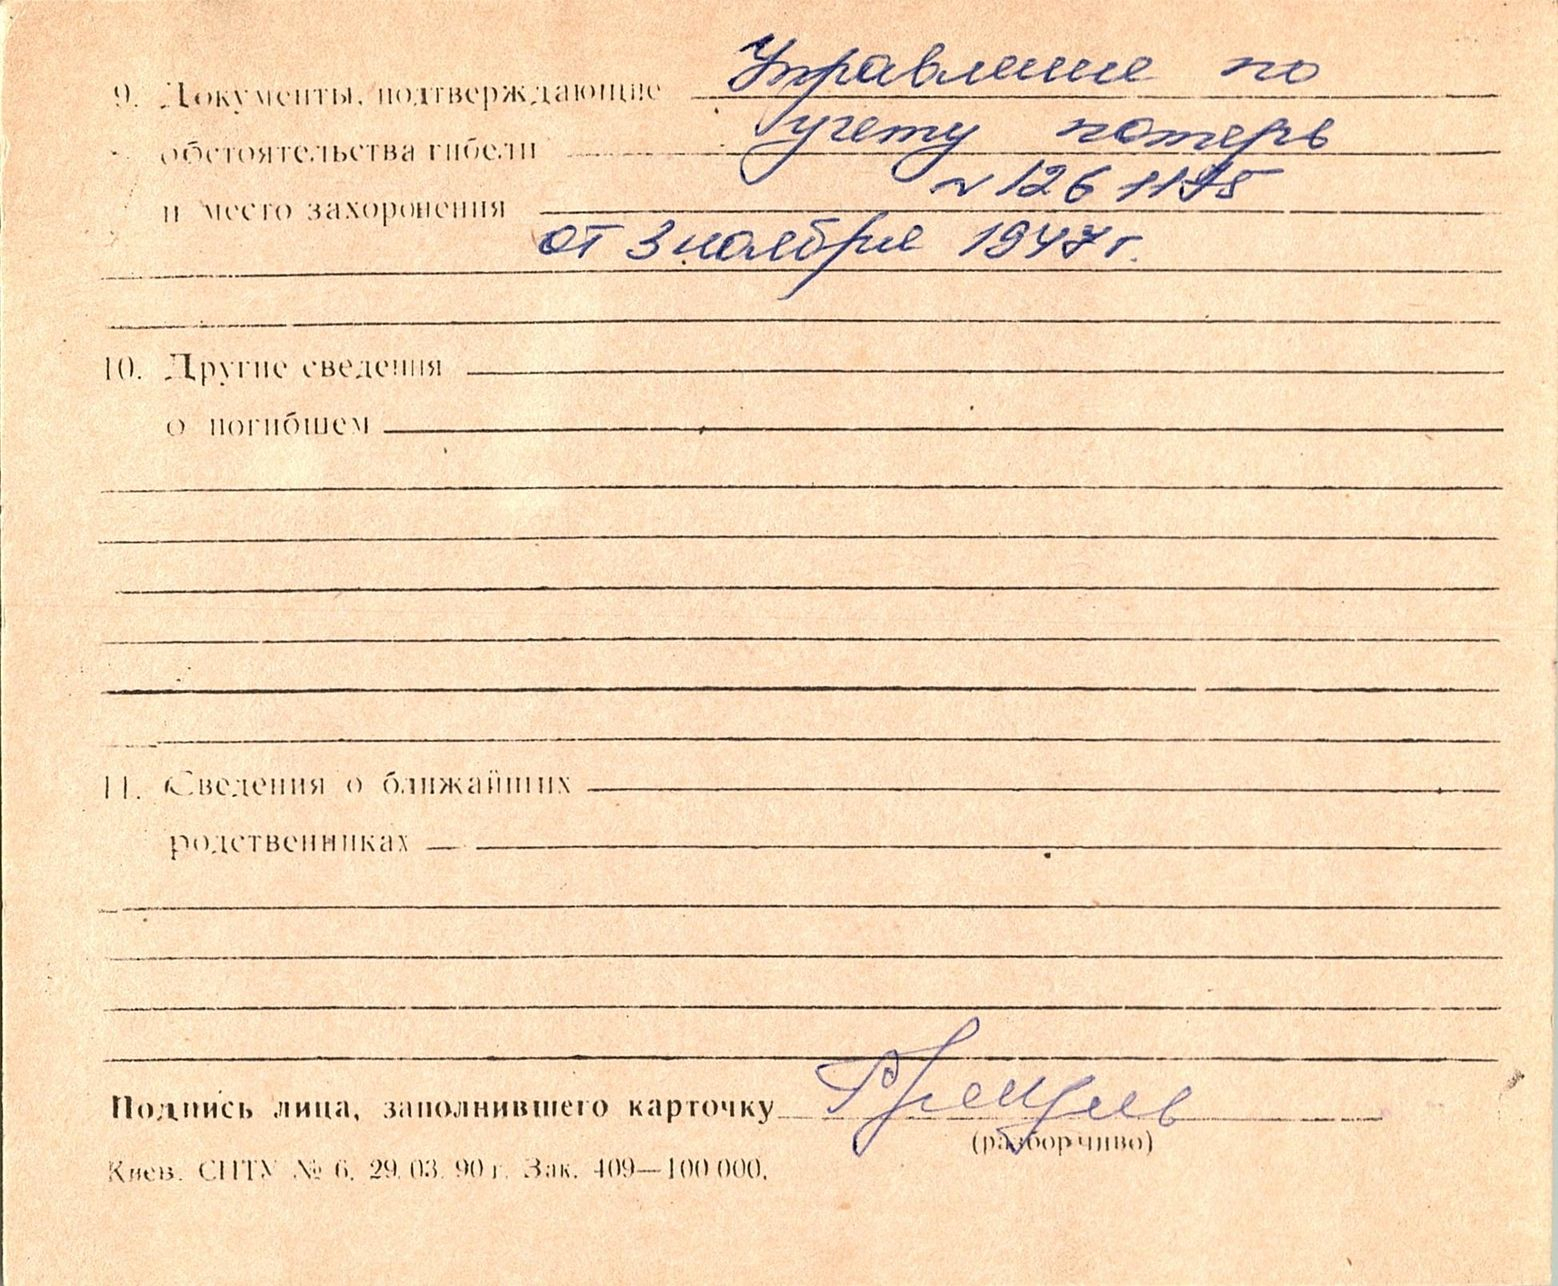 9. Документы, подтверждающие Управление по
обстоятельства гибели учету потерь
и место захоронения № 126 1175
от 3 ноября 1947 г.
10. Другие сведения
о погибшем
11. Сведения о ближайших
родственниках
Подпись лица, заполнившего карточку
(разборчиво)
Киев. СПТУ № 6. 29.03.90 г. Зак. 409—100 000.